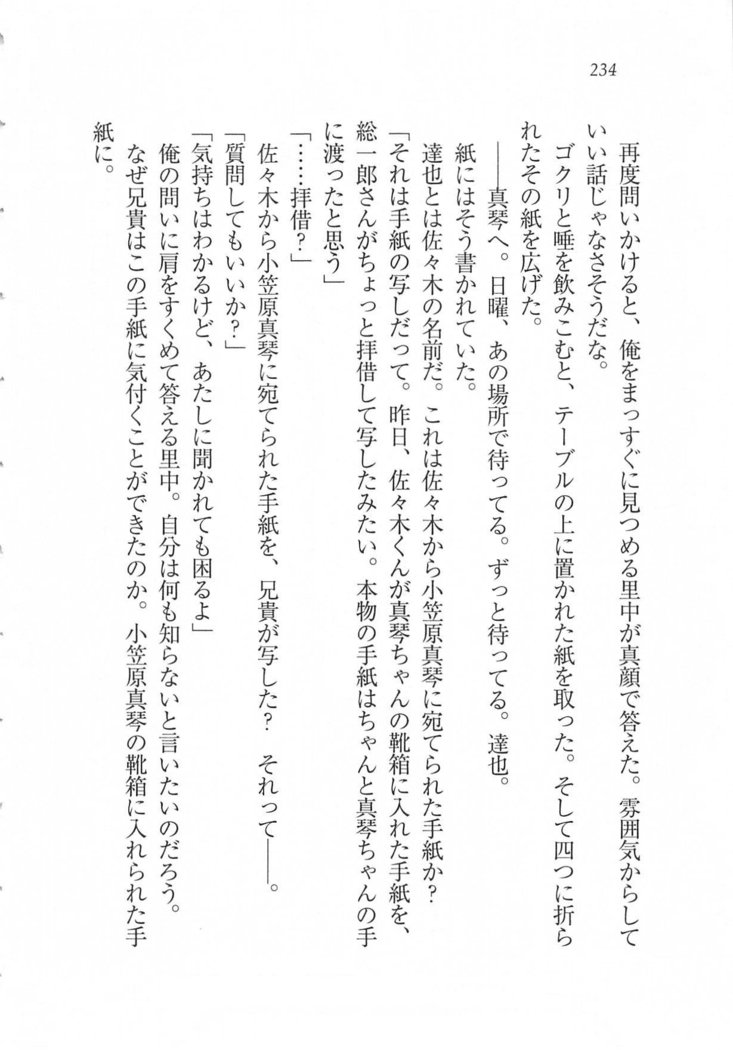 234
再度問いかけると、俺をまっすぐに見つめる里中が真顔で答えた。雰囲気からして
いい話じゃなさそうだな。
ゴクリと唾を飲みこむと、テーブルの上に置かれた紙を取った。そして四つに折ら
れたその紙を広げた。
――真琴へ。日曜、あの場所で待ってる。ずっと待ってる。達也。
紙にはそう書かれていた。
達也とは佐々木の名前だ。これは佐々木から小笠原真琴に宛てられた手紙か?
「それは手紙の写しだって。昨日、佐々木くんが真琴ちゃんの靴箱に入れた手紙を、
総一郎さんがちょっと拝借して写したみたい。本物の手紙はちゃんと真琴ちゃんの手
に渡ったと思う」
「……拝借?」
佐々木から小笠原真琴に宛てられた手紙を、兄貴が写した? それって――。
「質問してもいいか?」
「気持ちはわかるけど、あたしに聞かれても困るよ」
俺の問いに肩をすくめて答える里中。自分は何も知らないと言いたいのだろう。
なぜ兄貴はこの手紙に気付くことができたのか。小笠原真琴の靴箱に入れられた手
紙に。